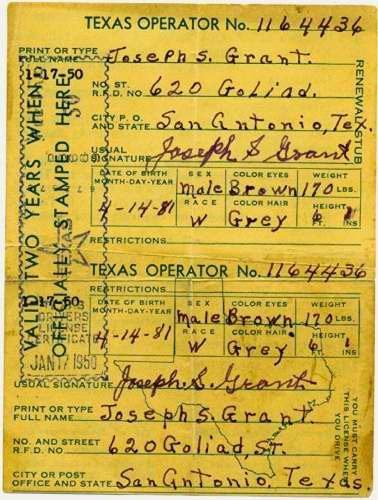 TEXAS OPERATOR No. 1164436
PRINT OR TYPE
FULL NAME Joseph S. Grant.
1-17-50
NO. ST.
R.F.D. NO. 620 Goliad.
CITY P. O.
AND STATE. San Antonio, Tex.
USUAL
SIGNATURE Joseph S Grant
RENEWAL STUB
VALID TWO YEARS WHEN
OFFICIALLY STAMPED HERE
DATE OF BIRTH
MONTH-DAY-YEAR
4-14-81
SEX
male
COLOR EYES
Brown
WEIGHT
170 LBS.
RACE
W
COLOR HAIR
Grey
HEIGHT
6 1 INS
RESTRICTIONS
TEXAS OPERATOR No. 1164436
1-17-50
DATE OF BIRTH
MONTH-DAY-YEAR
4-14-81
SEX
male
COLOR EYES
Brown
WEIGHT
170 LBS.
RACE
W
COLOR HAIR
Grey
HEIGHT
6 1 INS
DRIVERS
LICENSE
CERTIFICATE
JAN 17 1950
RESTRICTIONS
USUAL SIGNATURE Joseph S. Grant
PRINT OR TYPE
FULL NAME Joseph S. Grant.
NO. AND STREET
R.F.D. NO 620 Goliad, ST.
CITY OR POST
OFFICE AND STATE San Antonio, Texas.
YOU MUST CARRY
THIS LICENSE WHEN
YOU DRIVE